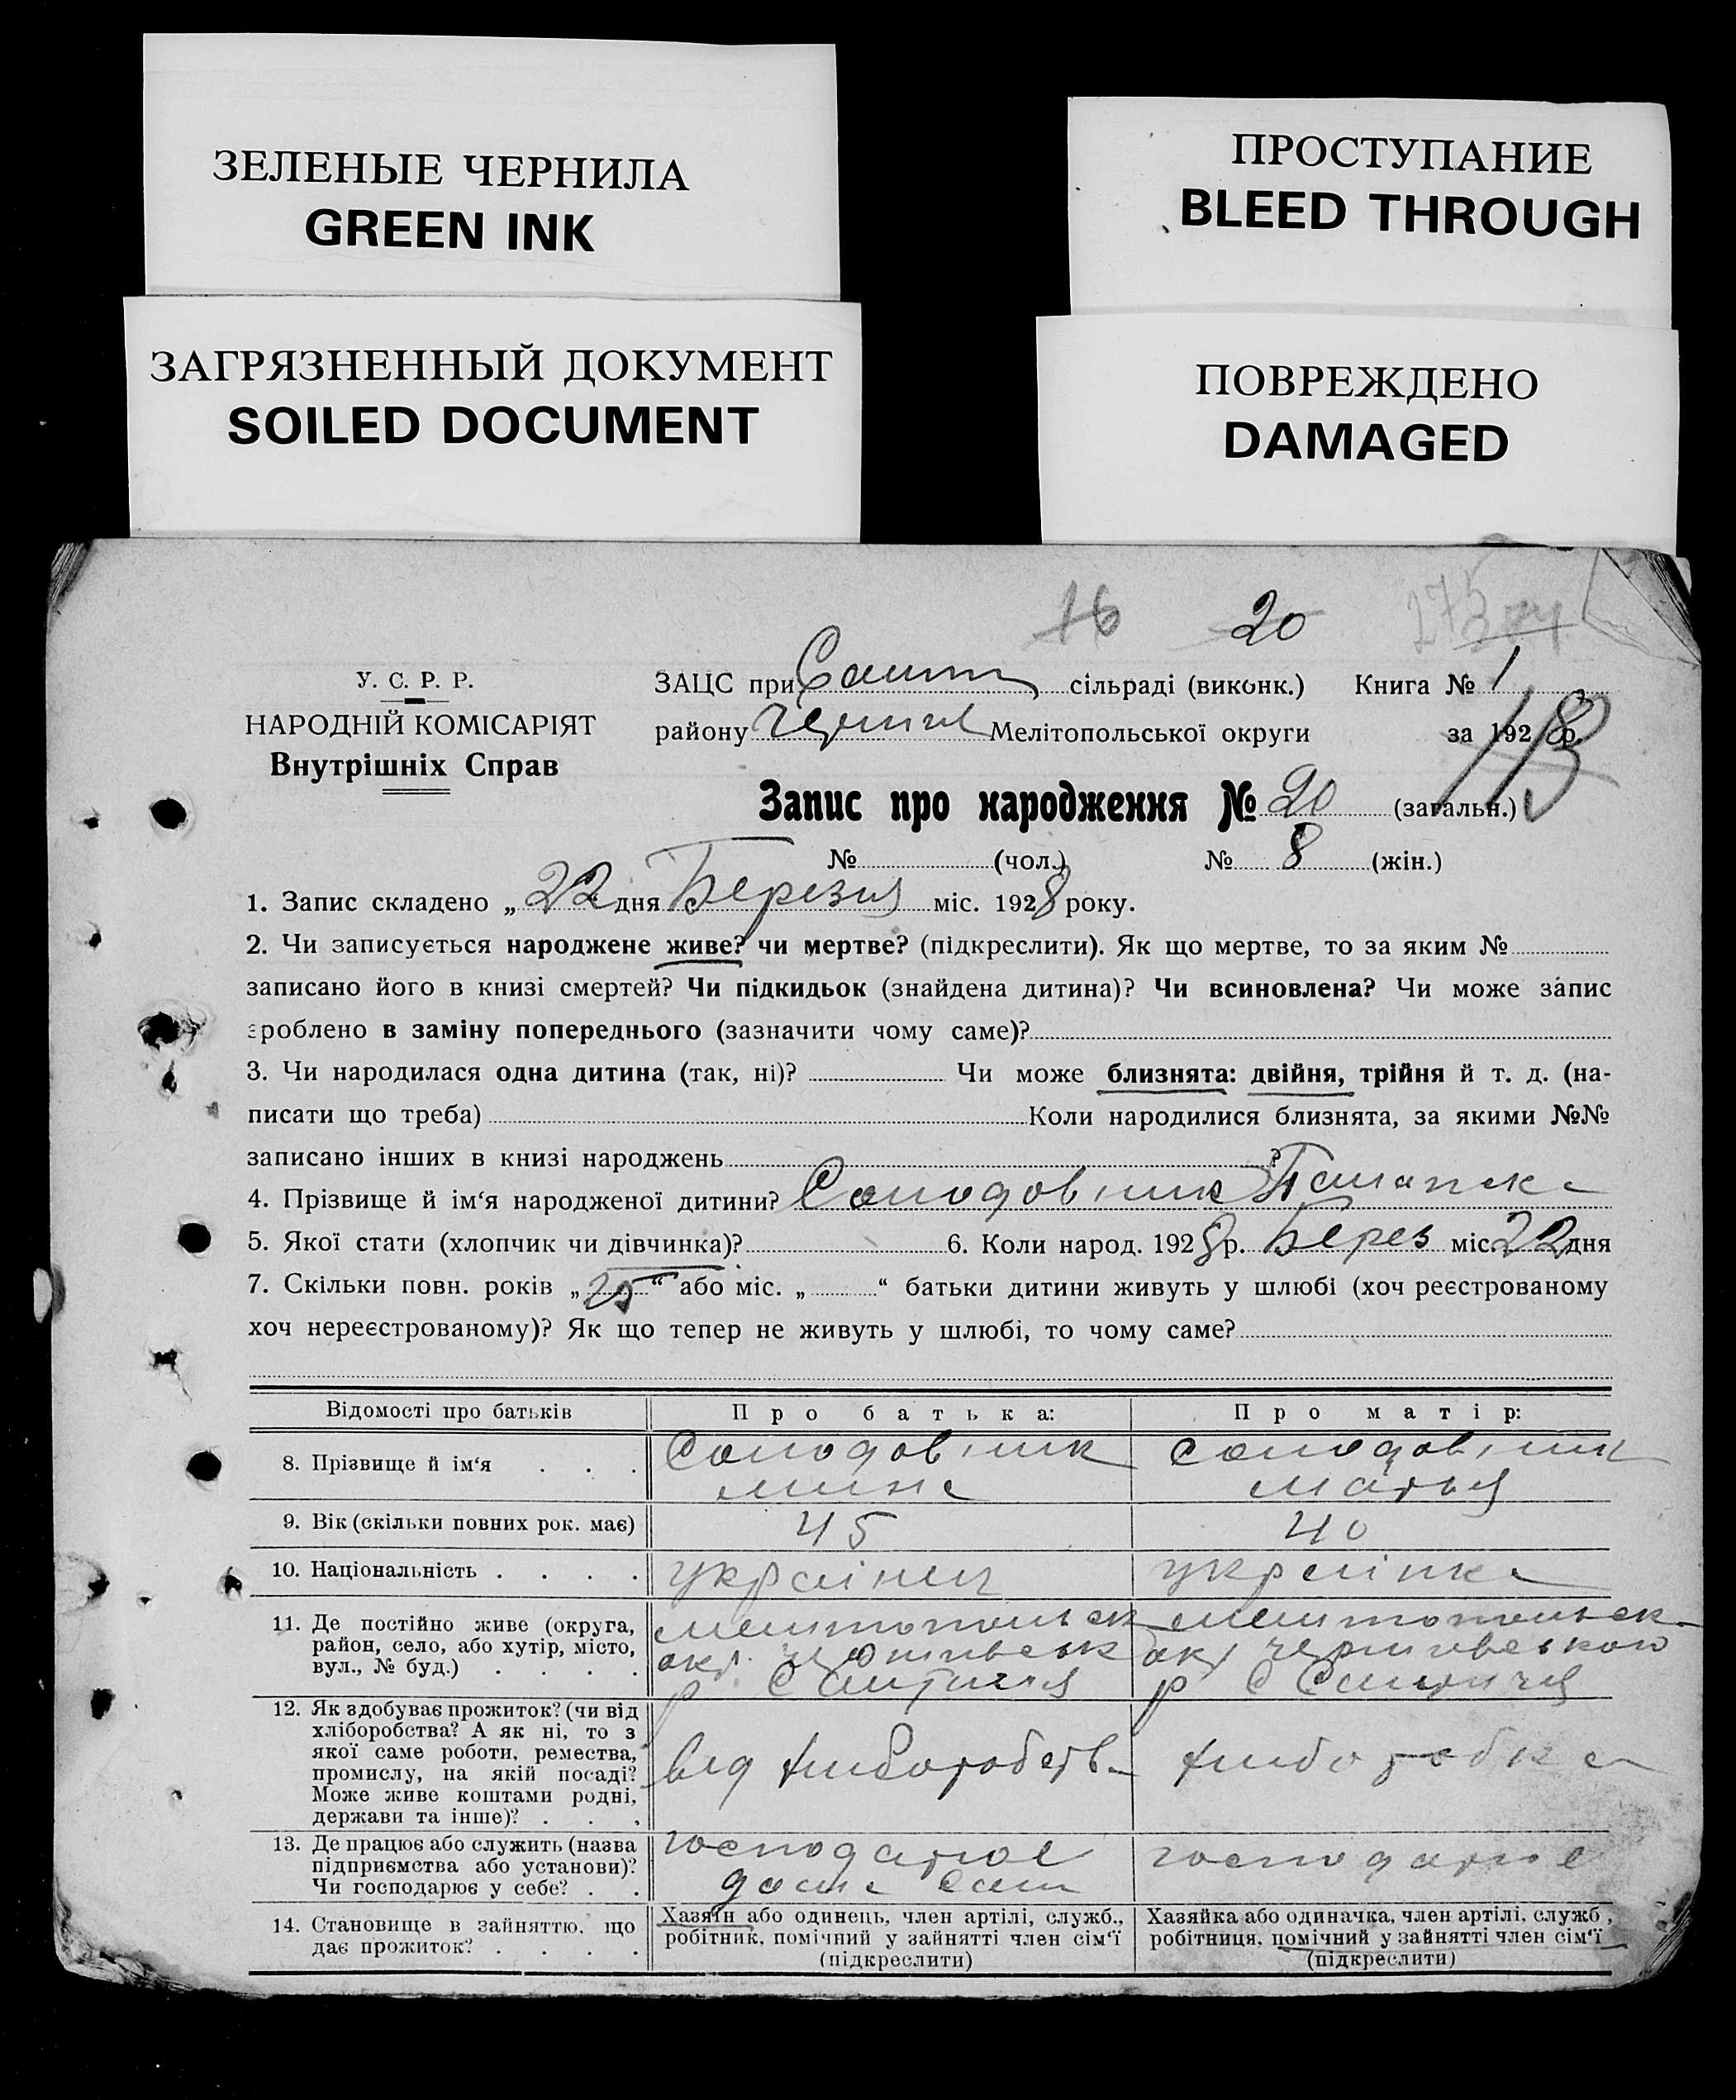 ЗЕЛЕНЫЕ ЧЕРНИЛА
GREEN INK
ПРОСТУПАНИЕ
BLEED THROUGH
ЗАГРЯЗНЕННЫЙ ДОКУМЕНТ
SOILED DOCUMENT
ПОВРЕЖДЕНО
DAMAGED
16 20
У. С. Р. Р.
НАРОДНІЙ КОМІСАРІЯТ
Внутрішніх Справ
ЗАЦС при сільраді (виконк.) Книга № 1
району Мелітопольської округи за 1928 р.
113
Запис про народження № 20 (загальн.)
№ (чол.) № 8 (жін.)
1. Запис складено „ 22 дня Березня міс. 1928 року.
2. Чи записується народжене живе? чи мертве? (підкреслити). Як що мертве, то за яким №
записано його в книзі смертей? Чи підкидьок (знайдена дитина)? Чи всиновлена? Чи може запис
зроблено в заміну попереднього (зазначити чому саме)?
3. Чи народилася одна дитина (так, ні)? Чи може близнята: двійня, трійня й т. д. (на-
писати що треба) Коли народилися близнята, за якими №№
записано інших в книзі народжень ?
4. Прізвище й ім‘я народженої дитини? Солодовник
5. Якої стати (хлопчик чи дівчинка)? 6. Коли народ. 1928 р. Берез міс. 22 дня
7. Скільки повн. років „ 25 “ або міс. „ “ батьки дитини живуть у шлюбі (хоч реєстрованому
хоч нереєстрованому)? Як що тепер не живуть у шлюбі, то чому саме?
Відомості про батьків Про батька: Про матір:
8. Прізвище й ім‘я Солодовник Солодовник
Марья
9. Вік (скільки повних рок. має) 45 40
10. Національність українец українка
11. Де постійно живе (округа,
район, село, або хутір, місто,
вул., № буд.)
Мелитопольск
окр.
р с
Мелитопольск
окр Чернигов
р с
12. Як здобуває прожиток? (чи від
хліборобства? А як ні, то з
якої саме роботи, ремества,
промислу, на якій посаді?
Може живе коштами родні,
держави та інше)?
від хліборобств
хліборобка
13. Де працює або служить (назва
підприємства або установи)?
Чи господарює у себе?
господарює
дома сам
господарює
14. Становище в зайняттю, що
дає прожиток?
Хазяїн або одинець, член артілі, служб.,
робітник, помічний у зайнятті член сім‘ї
(підкреслити)
Хазяйка або одиначка, член артілі, служб.,
робітниця, помічний у зайнятті член сім‘ї
(підкреслити)